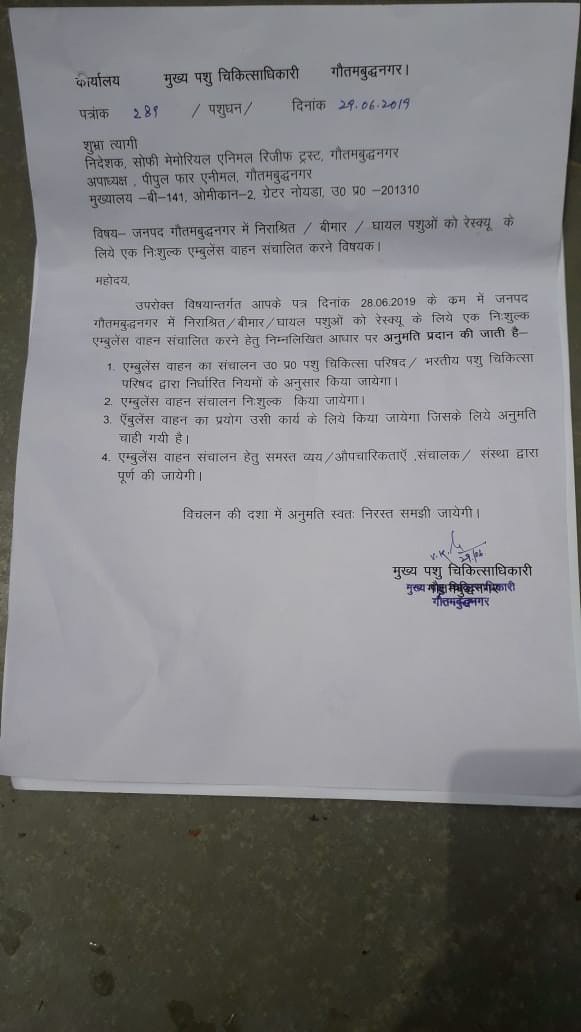 कार्यालय मुख्य पशु चिकित्साधिकारी गौतमबुद्धनगर।
पत्रांक 289 / पशुधन/ दिनांक 29.06.2019
शुभ्रा त्यागी
निदेशक, सोफी मेमोरियल एनिमल रिजीफ ट्रस्ट, गौतमबुद्धनगर
अपाध्यक्ष , पीपुल फार एनीमल, गौतमबुद्धनगर
मुख्यालय –बी–141, ओमीकान–2, ग्रेटर नोयडा, उ0 प्र0 –201310
विषय– जनपद गौतमबुद्धनगर में निराश्रित / बीमार / घायल पशुओं को रेस्क्यू के
लिये एक निःशुल्क एम्बुलेंस वाहन संचालित करने विषयक।
महोदय,
उपरोक्त विषयान्तर्गत आपके पत्र दिनांक 28.06.2019 के कम में जनपद
गौतमबुद्धनगर में निराश्रित/बीमार/घायल पशुओं को रेस्क्यू के लिये एक निःशुल्क
एम्बुलेंस वाहन संचालित करने हेतु निम्नलिखित आधार पर अनुमति प्रदान की जाती है–
1. एम्बुलेंस वाहन का संचालन उ0 प्र0 पशु चिकित्सा परिषद/ भरतीय पशु चिकित्सा
परिषद द्वारा निर्धारित नियमों के अनुसार किया जायेगा।
2. एम्बुलेंस वाहन संचालन निःशुल्क किया जायेगा।
3. ऍबुलेंस वाहन का प्रयोग उसी कार्य के लिये किया जायेगा जिसके लिये अनुमति
चाही गयी है।
4. एम्बुलेंस वाहन संचालन हेतु समस्त व्यय/औपचारिकताऍ ,संचालक/ संस्था द्वारा
पूर्ण की जायेगी।
विचलन की दशा में अनुमति स्वतः निरस्त समझी जायेगी।
29/06
मुख्य पशु चिकित्साधिकारी
मुख्य पशु चिकित्साधिकारी
गौतमबुद्धनगर